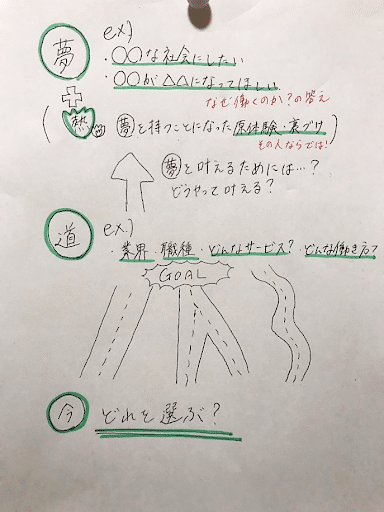 夢
ex)
・○○な社会にしたい
・○○が△△になってほしい
なぜ働くのか?の答え
(熱 夢を持つことになった原体験・裏づけ)
その人ならでは!
夢を叶えるためには…?
どうやって叶える?
道
ex.)
・業界・職種・どんなサービス?・どんな働き方?
GOAL
今 どれを選ぶ?